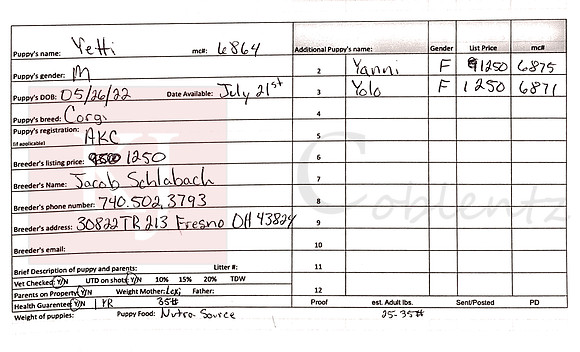 Puppy's name: Yetti mc#: 6864 Additional Puppy's name: Gender List Price mc#
Puppy's gender: M 2 Yanni F 1250 6875
Puppy's DOB: 05/26/22 Date Available: July 21st 3 Yolo F 1250 6871
Puppy's breed: Corgi 4
Puppy's registration: (if applicable) AKC 5
Breeder's listing price: 1250 6
Breeder's Name: Jacob Schlabach 7
Breeder's phone number: 740.502.3793 8
Coblentz
Breeder's address: 30822 TR 213 Fresno OH 43824 9
Breeder's email: 10
Brief Description of puppy and parents: Litter #: 11
Vet Checked: Y/N UTD on shots: Y/N 10% 15% 20% TDW
Parents on Property: Y/N Weight Mother: Lexi Father: 12
Health Guarantee: Y/N 1 YR 35# Proof est. Adult lbs. Sent/Posted PD
Weight of puppies: Puppy Food: Nutra Source 25-35#